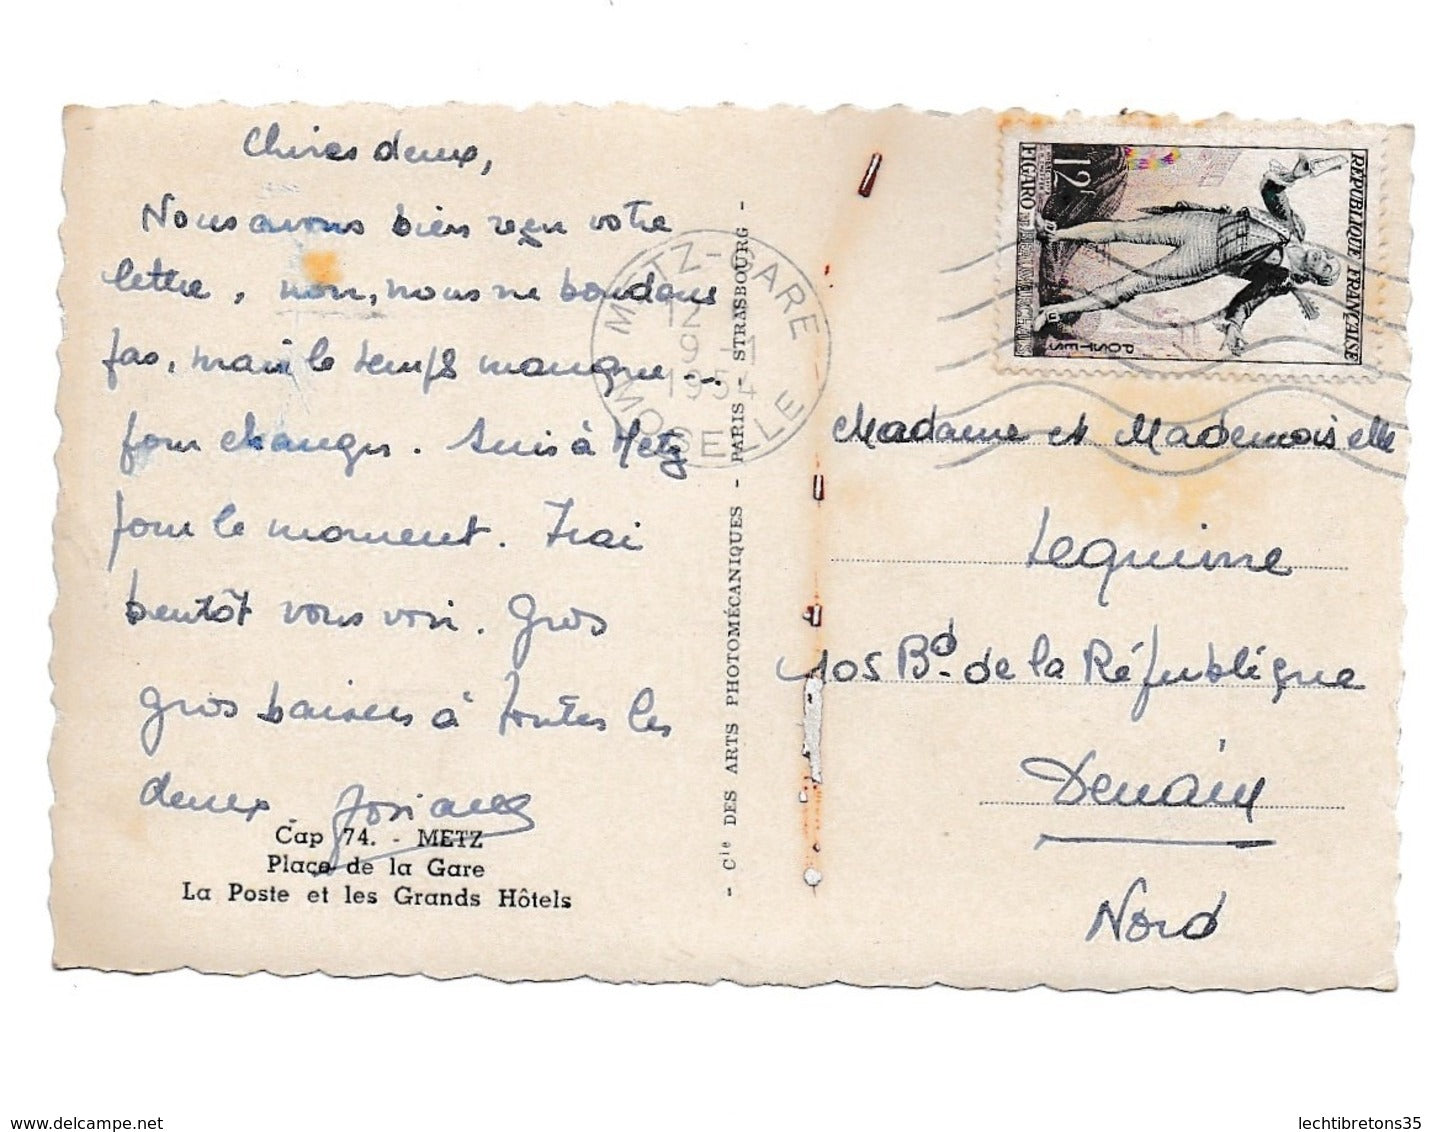 Chères deux,
Nous avons bien reçu votre
lettre, non, nous ne boudons
pas, mais le temps manque...
pour changer. Suis à Metz
pour le moment. Irai
bientôt vous voir. Gros
gros baisers à toutes les
deux Josiane
Cap 74. - METZ
Place de la Gare
La Poste et les Grands Hôtels
- Cie DES ARTS PHOTOMÉCANIQUES - PARIS - STRASBOURG -
METZ-GARE
12
9 - 7
1954
MOSELLE
RÉPUBLIQUE FRANÇAISE
POSTES
12F
FIGARO
Madame et Mademoiselle
Lequime
105 Bd. de la République
Denain
Nord
lechtibretons35